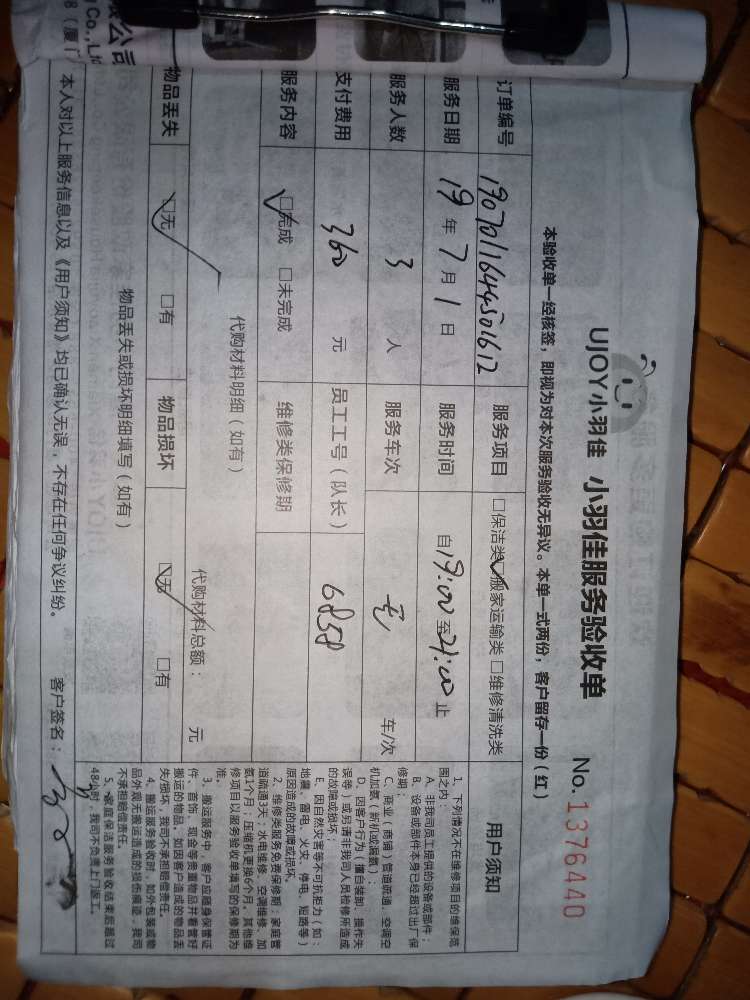 限公司
g Co.,Ltd
8（厦门
UJOY小羽佳 小羽佳服务验收单 No.1376440
本验收单一经核签，即视为对本次服务验收无异议。本单一式两份，客户留存一份（红）
订单编号 1907011644501612 服务项目 □保洁类 ☑搬家运输类 □维修清洗类
服务日期 19年7月1日 服务时间 自19:00至21:00止
服务人数 3人 服务车次 车/次
支付费用 360元 员工工号（队长） 6858
服务内容 ☑完成 □未完成 维修类保修期
代购材料明细（如有）
代购材料总额： 元
物品丢失 ☑无 □有 物品损坏 ☑无 □有
物品丢失或损坏明细填写（如有）
本人对以上服务信息以及《用户须知》均已确认无误，不存在任何争议纠纷。 客户签名：
用户须知
1、下列情况不在维修项目的维保范
围之内：
A、非我司员工提供的设备或部件；
B、设备或部件本身已经超过出厂保
修期；
C、商业（商铺）管道疏通、空调空
机加氨（新机或漏氨）；
D、因客户行为（擅自装卸、操作失
误等）或另请非我司人员检修所造成
的故障或损坏；
E、因自然灾害等不可抗拒力（如：
地震、雷电、火灾、停电、短路等）
原因造成的故障或损坏。
2、维修类服务免费保修期：家庭管
道疏通3天；水电维修、空调维修、加
氨1个月；压缩机更换6个月，其他维
修项目以服务验收单填写的保修期为
准。
3、搬运服务中，客户应随身保管证
件、首饰、现金等贵重物品并看管好
搬运的物品，如因客户造成的物品丢
失/损坏，我司不承担赔偿责任。
4、搬运服务验收时，如外包装或物
品外观无搬运造成的损伤痕迹，我司
不承担赔偿责任。
5、家庭保洁服务验收结束后超过
48小时，我司不负责上门返工。